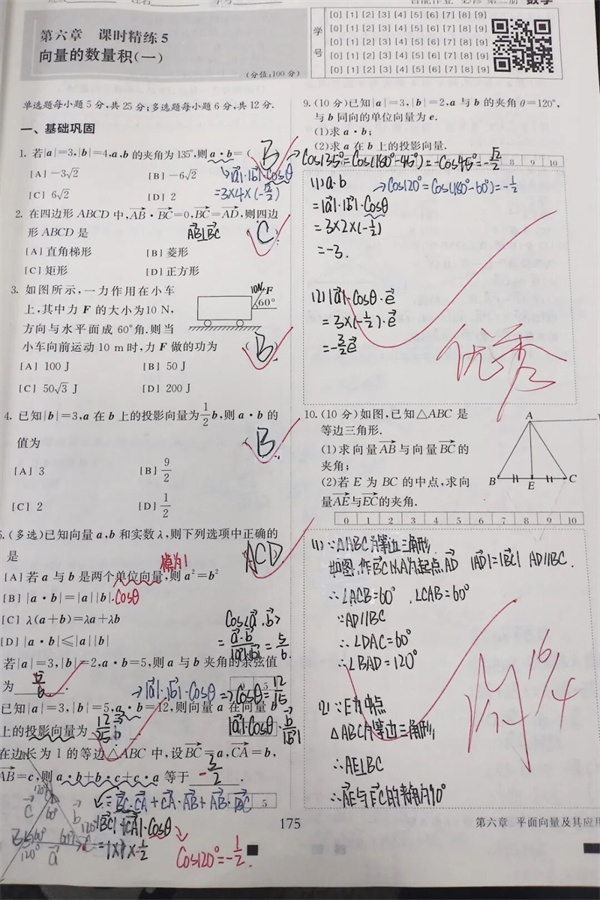 第六章 课时精练5
向量的数量积(一)
(分值:100分)
学号
[0] [1] [2] [3] [4] [5] [6] [7] [8] [9]
[0] [1] [2] [3] [4] [5] [6] [7] [8] [9]
[0] [1] [2] [3] [4] [5] [6] [7] [8] [9]
[0] [1] [2] [3] [4] [5] [6] [7] [8] [9]
单选题每小题5分,共25分;多选题每小题6分,共12分.
一、基础巩固
1. 若|a|=3,|b|=4,a,b的夹角为135°,则a·b=( B )
→Cos135°=Cos(180°-45°)=-Cos45°=-√2/2
[A] -3√2 [B] -6√2
→|a|·|b|·Cosθ
[C] 6√2 [D] 2
=3×4×(-√2/2)
2. 在四边形ABCD中,AB·BC=0,BC=AD,则四边
形ABCD是 AB⊥BC ( C )
[A]直角梯形 [B]菱形
[C]矩形 [D]正方形
3. 如图所示,一力作用在小车
上,其中力F的大小为10 N,
方向与水平面成60°角.则当
小车向前运动10 m时,力F做的功为 ( B )
10N F
60°
[A] 100 J [B] 50 J
[C] 50√3 J [D] 200 J
4. 已知|b|=3,a在b上的投影向量为1/2b,则a·b的
值为 ( B )
[A] 3 [B] 9/2
[C] 2 [D] 1/2
5.(多选)已知向量a,b和实数λ,则下列选项中正确的
是 ACD
模为1
[A]若a与b是两个单位向量,则a²=b²
[B]|a·b|=|a||b|.cosθ
[C] λ(a+b)=λa+λb
[D]|a·b|≤|a||b|
Cos<a·b>
=a·b/|a||b|=5/6
若|a|=3,|b|=2,a·b=5,则a与b夹角的余弦值
为 5/6 .
→|a|·|b|·Cosθ ⇒ Cosθ=12/15
已知|a|=3,|b|=5,a·b=12,则向量a在向量b
上的投影向量为 12/25 b
|a|·Cosθ·b/|b|
在边长为1的等边△ABC中,设BC=a,CA=b,
AB=c,则a·b+b·c+c·a等于 -3/2 .
=BC·CA+CA·AB+AB·BC
|BC|·|CA|·Cosθ
=1×1×-1/2
Cos120°=-1/2.
9.(10分)已知|a|=3,|b|=2,a与b的夹角θ=120°,
与b同向的单位向量为e.
(1)求a·b;
(2)求a在b上的投影向量.
(1) a·b →Cos120°=Cos(180°-60°)=-1/2
=|a|·|b|·Cosθ
=3×2×(-1/2)
=-3.
(2) |a|·Cosθ·e
=3×(-1/2)·e
=-3/2e
优秀
10.(10分)如图,已知△ABC是
等边三角形.
(1)求向量AB与向量BC的
夹角;
(2)若E为BC的中点,求向
量AE与EC的夹角.
A
B E C
0 1 2 3 4 5 6 7 8 9 10
(1) ∵△ABC为等边三角形
如图,作BC以A为起点,AD |AD|=|BC| AD∥BC.
∴∠ACB=60° ∠CAB=60°
∵AD∥BC
∴∠DAC=60°
∴∠BAD=120°
(2) ∵E为中点
△ABC为等边三角形
∴AE⊥BC
∴AE与EC的夹角为90°
175
第六章 平面向量及其应用